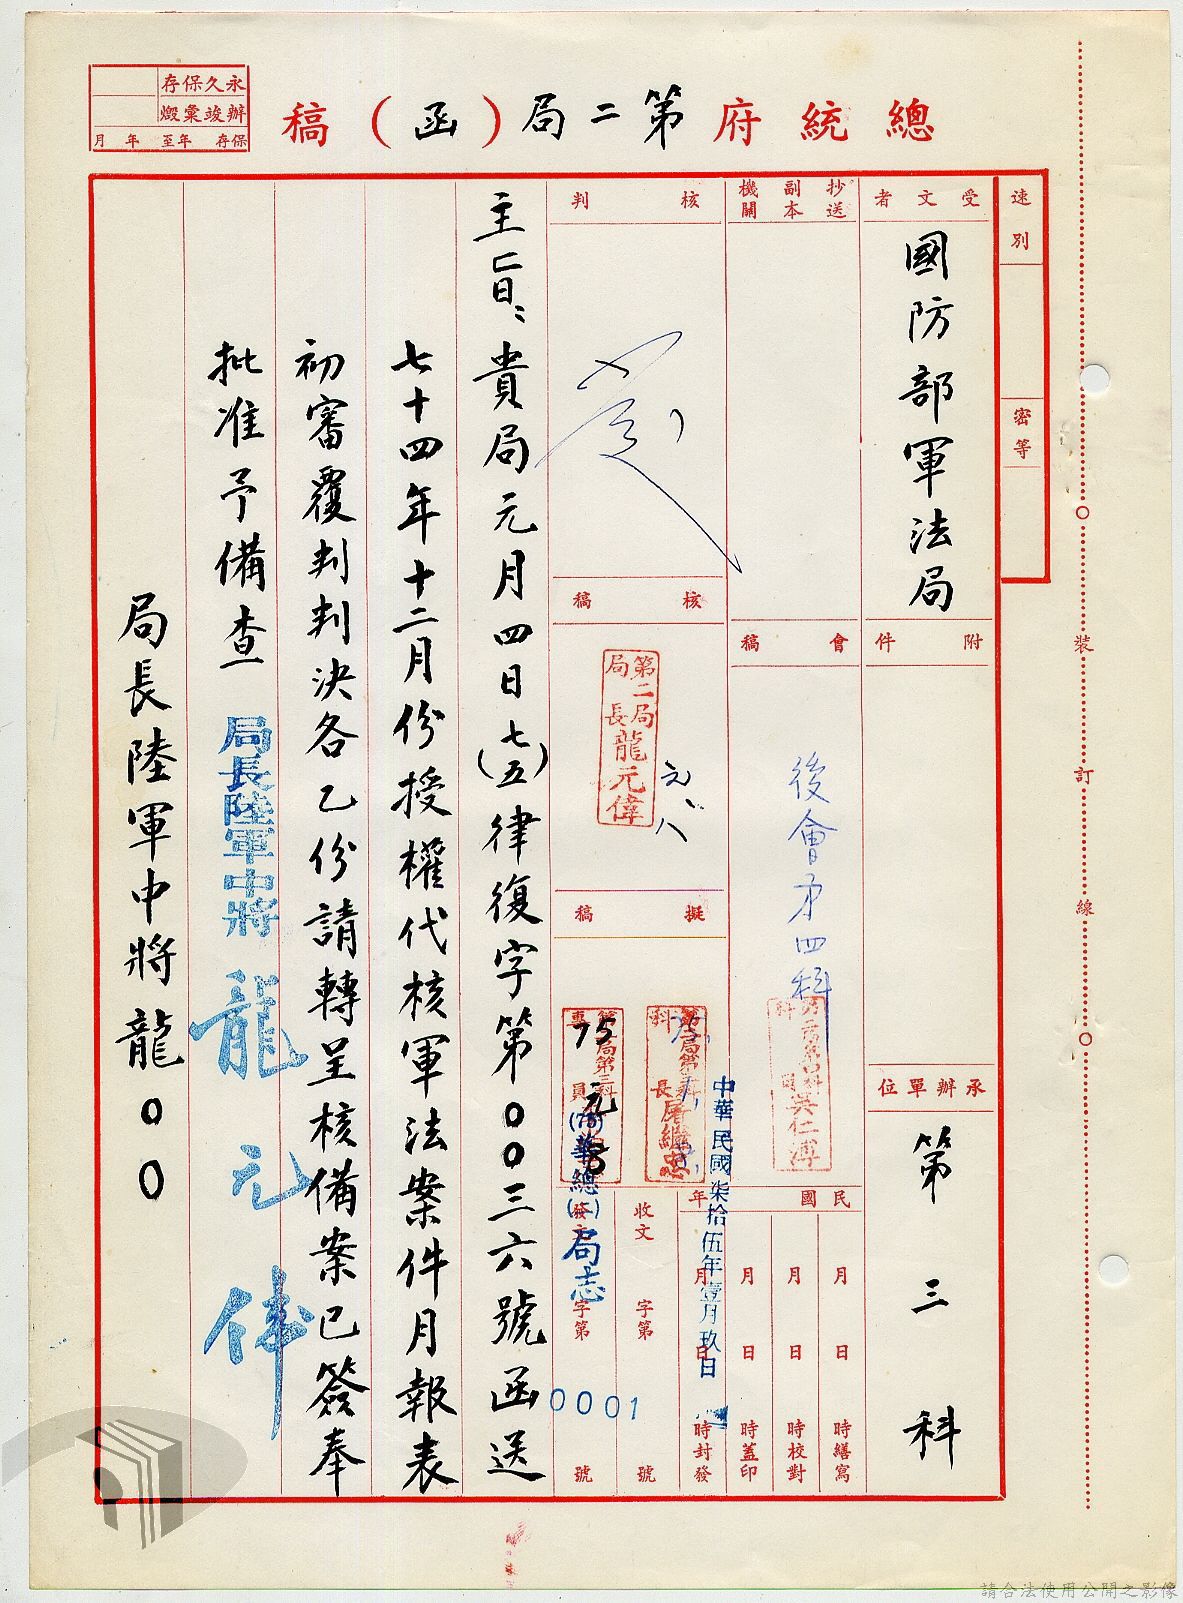 總統府第二局（函）稿
永久保存
辦竣彙燬
保存 年至 年 月
速別
密等
受文者
國防部軍法局
附件
承辦單位
第三科
抄送副本機關
會稿
後會才四科
核判
核稿
第二局局長龍元偉
元、八
擬稿
民國 年
月 日 時繕寫
月 日 時校對
月 日 時蓋印
月 日 時封發
中華民國柒拾伍年壹月玖日
收文 字第 號
發文 字第 號
(75)華總(二)局志
0001
主旨：貴局元月四日(七五)律復字第００三六號函送
七十四年十二月份授權代核軍法案件月報表
初審覆判判決各乙份請轉呈核備案已簽奉
批准予備查
局長陸軍中將龍元偉
局長陸軍中將龍００
裝訂線
請合法使用公開之影像